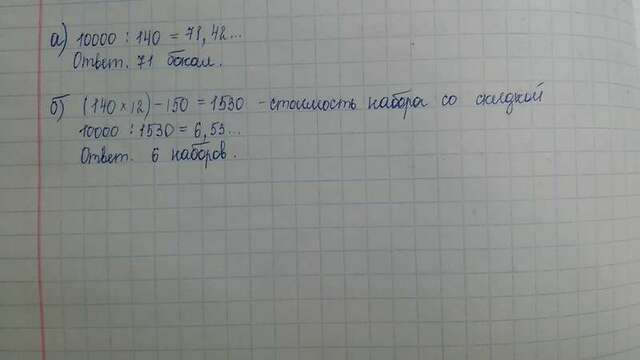 а) 10000 : 140 = 71,42...
Ответ. 71 бокал.
б) (140 × 12) - 150 = 1530 - стоимость набора со скидкой
10000 : 1530 = 6,53...
Ответ. 6 наборов.